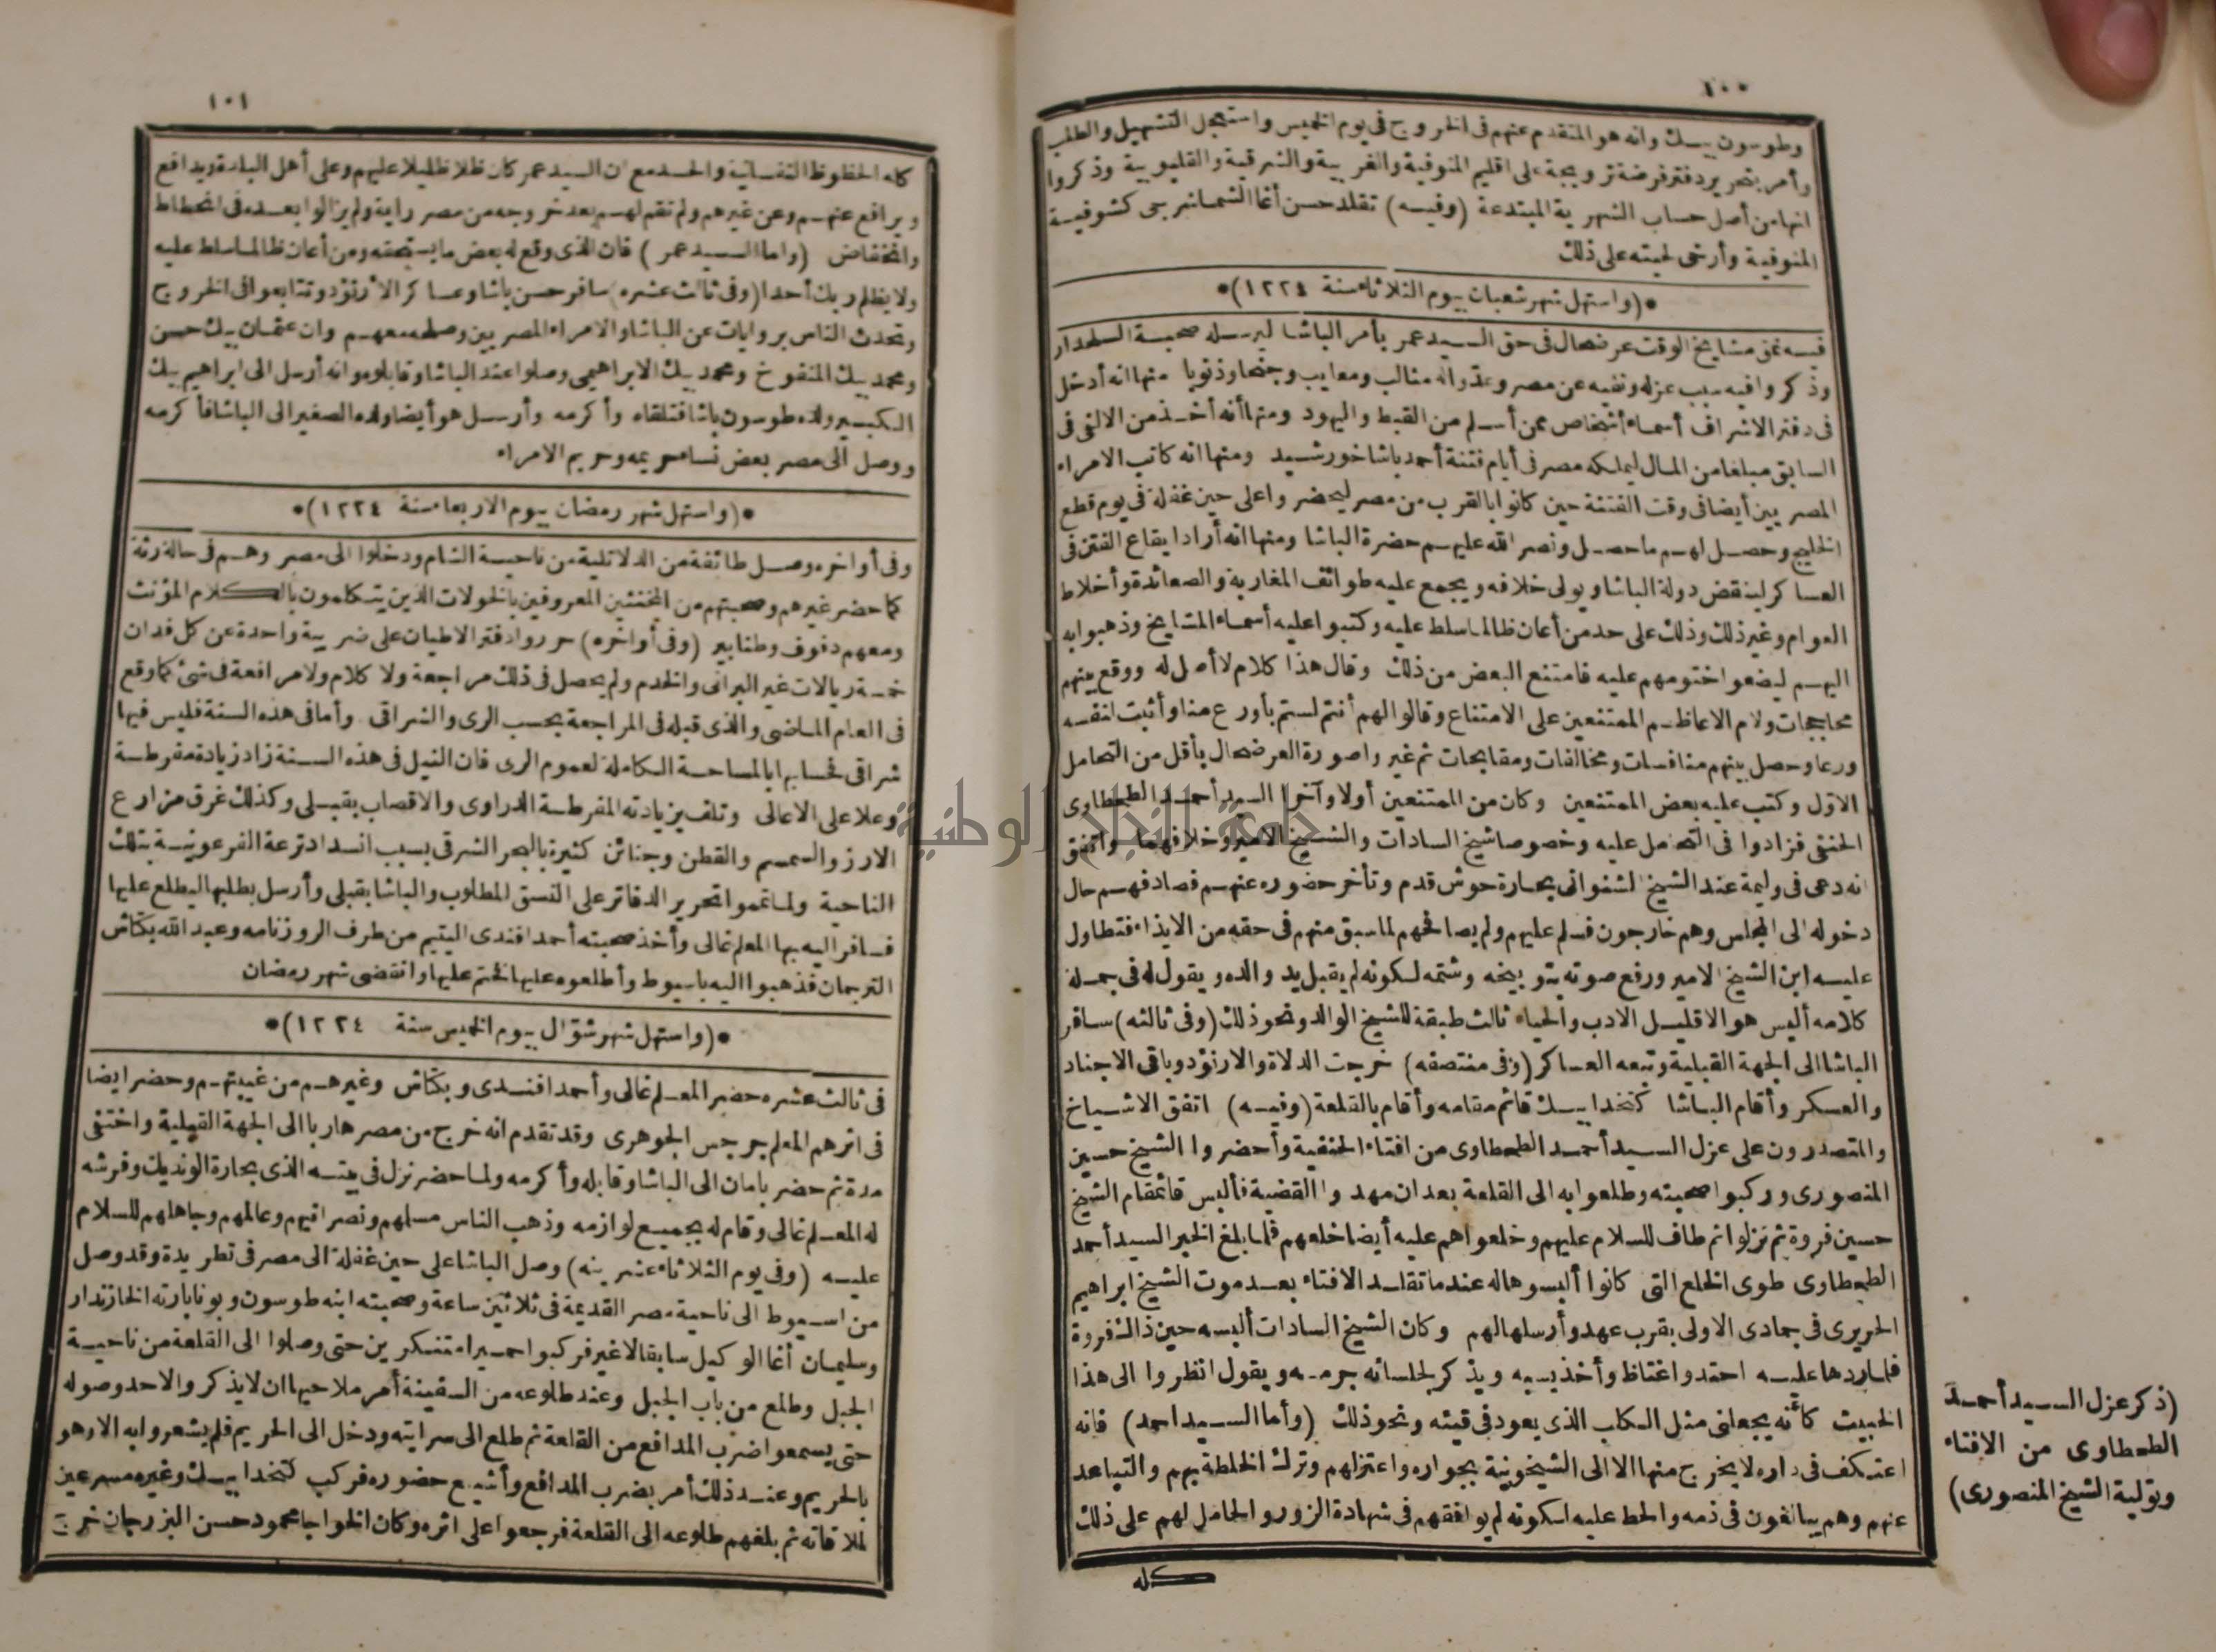 ١٠٠
وطوسون بيك وانه هو المتقدم عنهم فى الخروج فى يوم الخميس واستعجل التشهيل والطلب
وأمر بتحرير دفتر فرضة ترويجة على اقليم المنوفية والغربية والشرقية والقليوبية وذكروا
انها من أصل حساب الشهرية المبتدعة (وفيه) تقلد حسن أغا الشماشرجى كشوفية
المنوفية وأرخى لحيته على ذلك
*(واستهل شهر شعبان بيوم الثلاثاء سنة ١٢٢٤)*
فيه نمق مشايخ الوقت عرضحال فى حق السيد عمر بأمر الباشا ليرسله صحبة السلحدار
وذكروا فيه سبب عزله ونفيه عن مصر وعدوا له مثالب ومعايب وجنحا وذنوبا منها انه أدخل
فى دفتر الاشراف أسماء أشخاص ممن أسلم من القبط واليهود ومنها أنه أخذ من الالفى فى
السابق مبلغا من المال ليملكه مصر فى أيام فتنة أحمد باشا خورشيد ومنها انه كاتب الامراء
المصريين أيضا فى وقت الفتنة حين كانوا بالقرب من مصر ليحضروا على حين غفلة فى يوم قطع
الخليج وحصل لهم ما حصل ونصر الله عليهم حضرة الباشا ومنها انه أراد ايقاع الفتن فى
العساكر لينقض دولة الباشا ويولى خلافه ويجمع عليه طوائف المغاربة والصعائدة وأخلاط
العوام وغير ذلك وذلك على حد من أعان ظالما سلط عليه وكتبوا عليه أسماء المشايخ وذهبوا به
اليهم ليضعوا ختومهم عليه فامتنع البعض من ذلك وقال هذا كلام لا أصل له ووقع بينهم
محاججات ولام الاعاظم الممتنعين على الامتناع وقالوا لهم أنتم لستم بأورع منا وأثبت لنفسه
ورعا وحصل بينهم منافسات ومخالفات ومقابحات ثم غيروا صورة العرضحال بأقل من التحامل
الاول وكتب عليه بعض الممتنعين وكان من الممتنعين أولا وآخرا السيد أحمد الطحطاوى
الحنفى فزادوا فى التحامل عليه وخصوصا شيخ السادات والشيخ الامير وخلافهما واتفق
انه دعى فى وليمة عند الشيخ الشنوانى بحارة حوش قدم وتأخر حضوره عنهم فصادفهم حال
دخوله الى المجلس وهم خارجون فسلم عليهم ولم يصافحهم لما سبق منهم فى حقه من الايذاء فتطاول
عليه ابن الشيخ الامير ورفع صوته بتوبيخه وشتمه لكونه لم يقبل يد والده ويقول له فى جملة
كلامه أليس هو الا قليل الادب والحياء ثالث طبقة للشيخ الوالد ونحو ذلك (وفى ثالثه) سافر
الباشا الى الجهة القبلية وتبعه العساكر (وفى منتصفه) خرجت الدلاة والارنؤد وباقى الاجناد
والعسكر وأقام الباشا كتخدا بيك قائم مقامه وأقام بالقلعة (وفيه) اتفق الاشياخ
والمتصدرون على عزل السيد أحمد الطحطاوى من افتاء الحنفية وأحضروا الشيخ حسين
المنصورى وركبوا صحبته وطلعوا به الى القلعة بعد ان مهدوا القضية فألبس قائمقام الشيخ
حسين فروة ثم نزلوا ثم طاف للسلام عليهم وخلعوا هم عليه أيضا خلعهم فلما بلغ الخبر السيد أحمد
الطحطاوى طوى الخلع التى كانوا ألبسوها له عندما تقلد الافتاء بعد موت الشيخ ابراهيم
الحريرى فى جمادى الاولى بقرب عهد وأرسلها لهم وكان الشيخ السادات ألبسه حين ذاك فروة
فلما ردها عليه احتد واغتاظ وأخذ يسبه ويذكر لجلسائه جرمه ويقول انظروا الى هذا
الخبيث كأنه يجعلنى مثل الكلب الذى يعود فى قيئه ونحو ذلك (وأما السيد احمد) فانه
اعتكف فى داره لا يخرج منها الا الى الشيخونية بجواره واعتزلهم وترك الخلطة بهم والتباعد
عنهم وهم يبالغون فى ذمه والحط عليه لكونه لم يوافقهم فى شهادة الزور والحامل لهم على ذلك
كله
(ذكر عزل السيد أحمد
الطحطاوى من الافتاء
وتولية الشيخ المنصورى)
١٠١
كله الحظوظ النفسانية والحسد مع ان السيد عمر كان ظلا ظليلا عليهم وعلى أهل البلدة ويدافع
ويرافع عنهم وعن غيرهم ولم تقم لهم بعد خروجه من مصر راية ولم يزالوا بعده فى انحطاط
وانخفاض (واما السيد عمر) فان الذى وقع له بعض ما يستحقه ومن أعان ظالما سلط عليه
ولا يظلم ربك أحدا (وفى ثالث عشره) سافر حسن باشا وعساكر الأرنؤد وتتابعوا فى الخروج
وتحدث الناس بروايات عن الباشا والامراء المصريين وصلحه معهم وان عثمان بيك حسن
ومحمد بيك المنفوخ ومحمد بيك الابراهيمى وصلوا عند الباشا وقابلوه وانه أرسل الى ابراهيم بيك
الكبير ولده طوسون باشا فتلقاه وأكرمه وأرسل هو أيضا ولده الصغير الى الباشا فأكرمه
ووصل الى مصر بعض نساء حريمه وحريم الامراء
*(واستهل شهر رمضان بيوم الاربعاء سنة ١٢٢٤)*
وفى أواخره وصل طائفة من الدلاتلية من ناحية الشام ودخلوا الى مصر وهم فى حالة رثة
كما حضر غيرهم وصحبتهم من المخنثين المعروفين بالخولات الذين يتكلمون بالكلام المؤنث
ومعهم دفوف وطنابير (وفى أواخره) حرروا دفتر الاطيان على ضريبة واحدة عن كل فدان
خمسة ريالات غير البرانى والخدم ولم يحصل فى ذلك مراجعة ولا كلام ولا مرافعة فى شئ كما وقع
فى العام الماضى والذى قبله فى المراجعة بحسب الرى والشراقى وأما فى هذه السنة فليس فيها
شراقى فحسابها بالمساحة الكاملة لعموم الرى فان النيل فى هذه السنة زاد زيادة مفرطة
وعلا على الاعالى وتلف بزيادته المفرطة الدراوى والاقصاب بقبلى وكذلك غرق مزارع
الارز والسمسم والقطن وجنائن كثيرة بالبحر الشرقى بسبب انسداد ترعة الفرعونية بتلك
الناحية ولما تمموا تحرير الدفاتر على النسق المطلوب والباشا بقبلى وأرسل يطلبها ليطلع عليها
فسافر اليه بها المعلم غالى وأخذ صحبته أحمد افندى اليتيم من طرف الروزنامه وعبد الله بكتاش
الترجمان فذهبوا اليه باسيوط وأطلعوه عليها فختم عليها وانقضى شهر رمضان
*(واستهل شهر شوال بيوم الخميس سنة ١٢٢٤)*
فى ثالث عشره حضر المعلم غالى وأحمد افندى وبكتاش وغيرهم من غيبتهم وحضر ايضا
فى اثرهم المعلم جرجس الجوهرى وقد تقدم انه خرج من مصر هاربا الى الجهة القبلية واختفى
مدة ثم حضر بامان الى الباشا وقابله وأكرمه ولما حضر نزل فى بيته الذى بحارة الونديك وفرشه
له المعلم غالى وقام له بجميع لوازمه وذهب الناس مسلمهم ونصرانيهم وعالمهم وجاهلهم للسلام
عليه (وفى يوم الثلاثاء عشرينه) وصل الباشا على حين غفلة الى مصر فى تطريدة وقد وصل
من اسيوط الى ناحية مصر القديمة فى ثلاثين ساعة وصحبته ابنه طوسون وبونابارته الخازندار
وسليمان أغا الوكيل سابقا لا غير فركبوا حميرا متنكرين حتى وصلوا الى القلعة من ناحية
الجبل وطلع من باب الجبل وعند طلوعه من السفينة أمر ملاحيها ان لا يذكروا لاحد وصوله
حتى يسمعوا ضرب المدافع من القلعة ثم طلع الى سرايته ودخل الى الحريم فلم يشعروا به الا وهو
بالحريم وعند ذلك أمر بضرب المدافع وأشيع حضوره فركب كتخدا بيك وغيره مسرعين
لملاقاته ثم بلغهم طلوعه الى القلعة فرجعوا على اثره وكان الخواجا محمود حسن البزرجان خرج
جامعة النجاح الوطنية